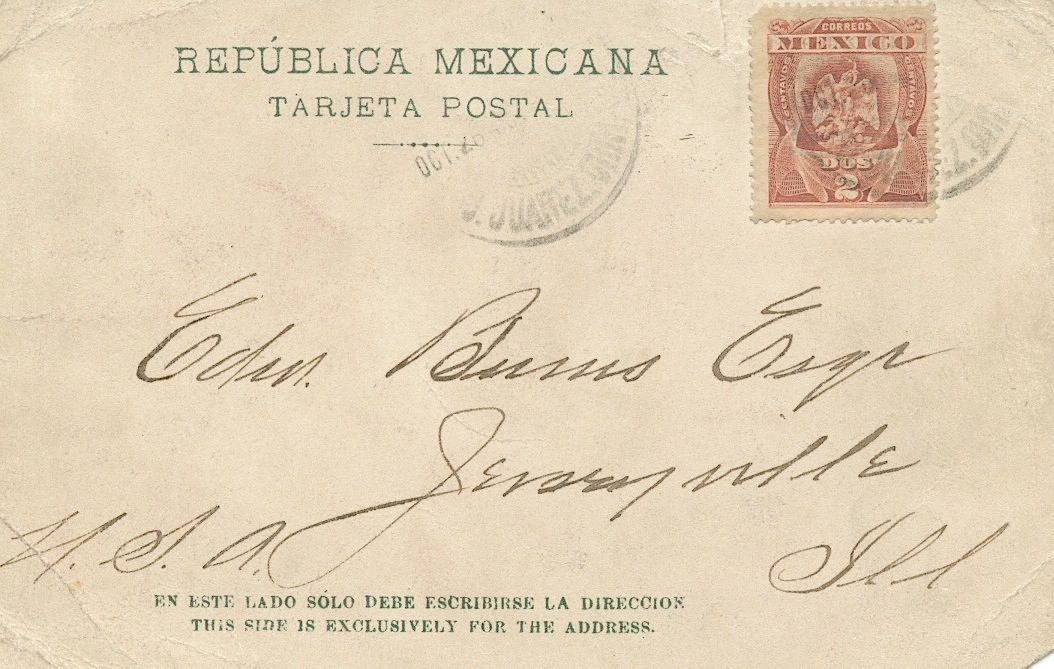 REPÚBLICA MEXICANA
TARJETA POSTAL
CORREOS
MEXICO
CENTAVOS CENTAVOS
DOS
2
OCT. 26
JUAREZ
Edw. Burns Esqr
Jerseyville
Ill
U. S. A.
EN ESTE LADO SÓLO DEBE ESCRIBIRSE LA DIRECCION
THIS SIDE IS EXCLUSIVELY FOR THE ADDRESS.